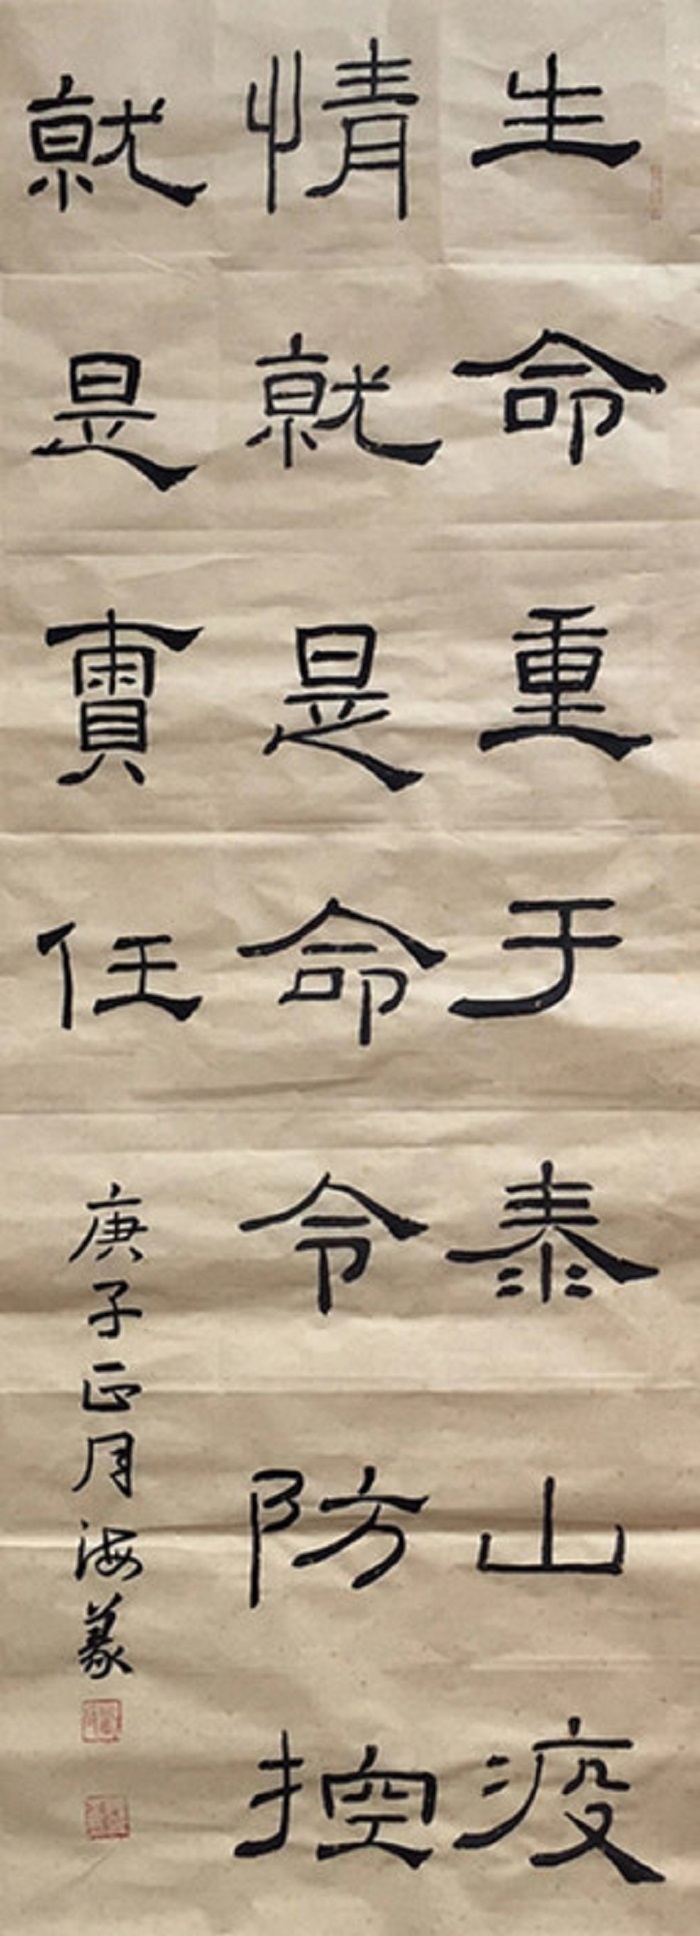 生命重于泰山疫
情就是命令防控
就是責任
庚子正月海